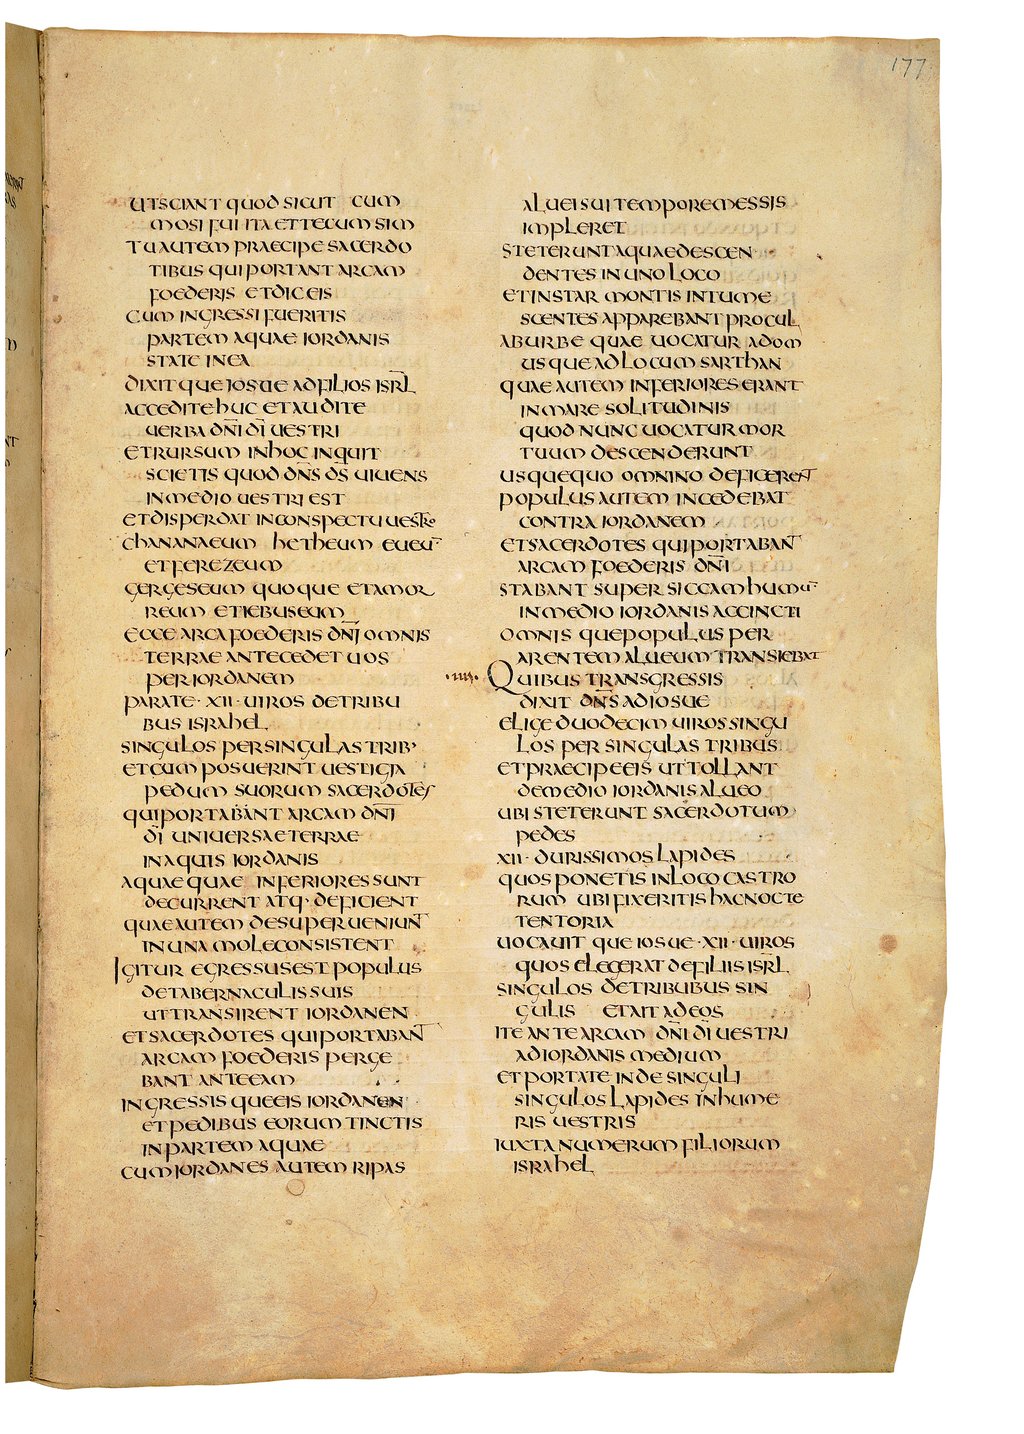 177
UT SCIANT QUOD SICUT CUM
MOSI FUI ITA ET TECUM SIM
TU AUTEM PRAECIPE SACERDO
TIBUS QUI PORTANT ARCAM
FOEDERIS ET DIC EIS
CUM INGRESSI FUERITIS
PARTEM AQUAE IORDANIS
STATE IN EA
DIXITQUE IOSUE AD FILIOS ISRL̅
ACCEDITE HUC ET AUDITE
UERBA DN̅I DI̅ UESTRI
ET RURSUM IN HOC INQUIT
SCIETIS QUOD DN̅S DS̅ UIUENS
IN MEDIO UESTRI EST
ET DISPERDAT IN CONSPECTU UESTRO
CHANANAEUM HETHEUM EUEU̅
ET FEREZEUM
GERGESEUM QUOQUE ET AMOR
REUM ET IEBUSEUM
ECCE ARCA FOEDERIS DN̅I OMNIS
TERRAE ANTECEDET UOS
PER IORDANEM
PARATE ·XII· UIROS DE TRIBU
BUS ISRAHEL
SINGULOS PER SINGULAS TRIB·
ET CUM POSUERINT UESTIGIA
PEDUM SUORUM SACERDOTES
QUI PORTABANT ARCAM DN̅I
DI̅ UNIUERSAE TERRAE
IN AQUIS IORDANIS
AQUAE QUAE INFERIORES SUNT
DECURRENT ATQ· DEFICIENT
QUAE AUTEM DESUPER UENIUNT
IN UNA MOLE CONSISTENT
IGITUR EGRESSUS EST POPULUS
DE TABERNACULIS SUIS
UT TRANSIRENT IORDANEN
ET SACERDOTES QUI PORTABANT
ARCAM FOEDERIS PERGE
BANT ANTE EAM
INGRESSISQUE EIS IORDANEN
ET PEDIBUS EORUM TINCTIS
IN PARTEM AQUAE
CUM IORDANES AUTEM RIPAS
ALUEI SUI TEMPORE MESSIS
IMPLERET
STETERUNT AQUAE DESCEN
DENTES IN UNO LOCO
ET INSTAR MONTIS INTUME
SCENTES APPAREBANT PROCUL
AB URBE QUAE UOCATUR ADOM
USQUE AD LOCUM SARTHAN
QUAE AUTEM INFERIORES ERANT
IN MARE SOLITUDINIS
QUOD NUNC UOCATUR MOR
TUUM DESCENDERUNT
USQUEQUO OMNINO DEFICERENT
POPULUS AUTEM INCEDEBAT
CONTRA IORDANEM
ET SACERDOTES QUI PORTABANT
ARCAM FOEDERIS DN̅I
STABANT SUPER SICCAM HUMU̅
IN MEDIO IORDANIS ACCINCTI
OMNISQUE POPULUS PER
ARENTEM ALUEUM TRANSIEBAT
·IIII· QUIBUS TRANSGRESSIS
DIXIT DN̅S AD IOSUE
ELIGE DUODECIM UIROS SINGU
LOS PER SINGULAS TRIBUS
ET PRAECIPE EIS UT TOLLANT
DE MEDIO IORDANIS ALUEO
UBI STETERUNT SACERDOTUM
PEDES
XII· DURISSIMOS LAPIDES
QUOS PONETIS IN LOCO CASTRO
RUM UBI FIXERITIS HAC NOCTE
TENTORIA
UOCAUITQUE IOSUE ·XII· UIROS
QUOS ELEGERAT DE FILIIS ISRL̅
SINGULOS DE TRIBUBUS SIN
GULIS ET AIT AD EOS
ITE ANTE ARCAM DN̅I DI̅ UESTRI
AD IORDANIS MEDIUM
ET PORTATE INDE SINGULI
SINGULOS LAPIDES IN HUME
RIS UESTRIS
IUXTA NUMERUM FILIORUM
ISRAHEL